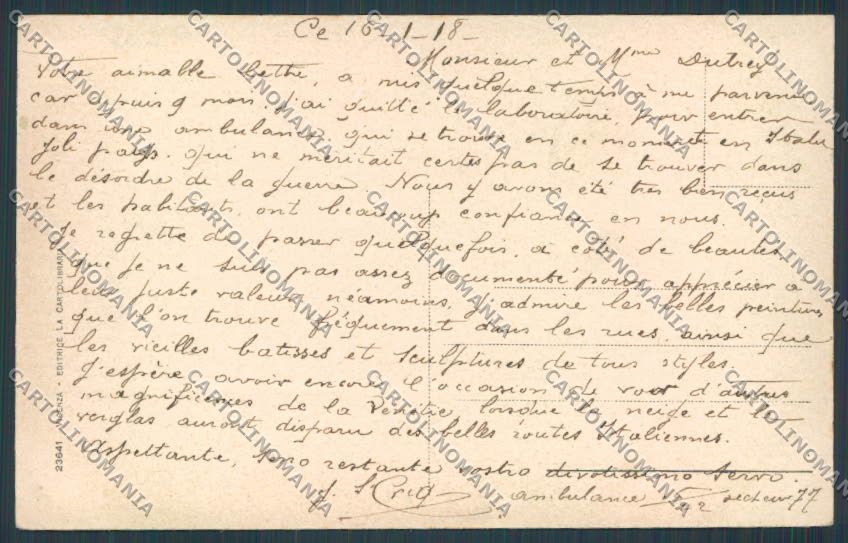 Ce 16-1-18-
Monsieur et Mme Dutrey
Votre aimable lettre, a mis quelque temps à me parvenir
car depuis 9 mois j'ai quitté le laboratoire, pour entrer
dans une ambulance, qui se trouve en ce moment en Italie
Joli pays. qui ne méritait certes pas de se trouver dans
le désordre de la guerre. Nous y avons été très bien reçus
et les habitants, ont beaucoup confiance en nous.
Je regrette de passer quelquefois, à côté de beautés
que je ne suis pas assez documenté pour apprécier à
leur juste valeur néamoins, j'admire les belles peintures
que l'on trouve fréquement dans les rues, ainsi que
les vieilles batisses et sculptures de tous styles.
J'espère avoir encore l'occasion de voir d'autres
magnificences de la Vénétie lorsque la neige et le
verglas auront disparu des belles routes Italiennes.
Aspettante, sono restante vostro divotissimo servo.
J. St ambulance secteur 77
23641 VICENZA - EDITRICE LA CARTOLIBRARIA
CARTOLINOMANIA